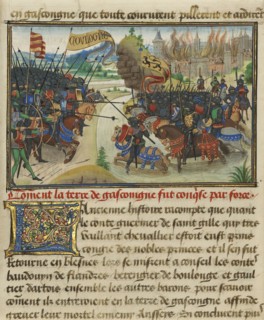 en gascongne que toute coururent pillerent et
Coment la terre de gascongne fut conq̃se par force
Ancienne histoire racompte que quant
le conte guerinier de saint gille que tres
vaillant chevallier estoit eust prins
congie des nobles princes et il s en fut
retourne en les mist a conseil les contes
baudouyn de flandres berengier de boulongne et gaul
tier dartois ensemble les autres barons pour scavoir
coment ilz entreroient en la terre de gascongne affin de
grever leur mortel ennemy Et conclurent par